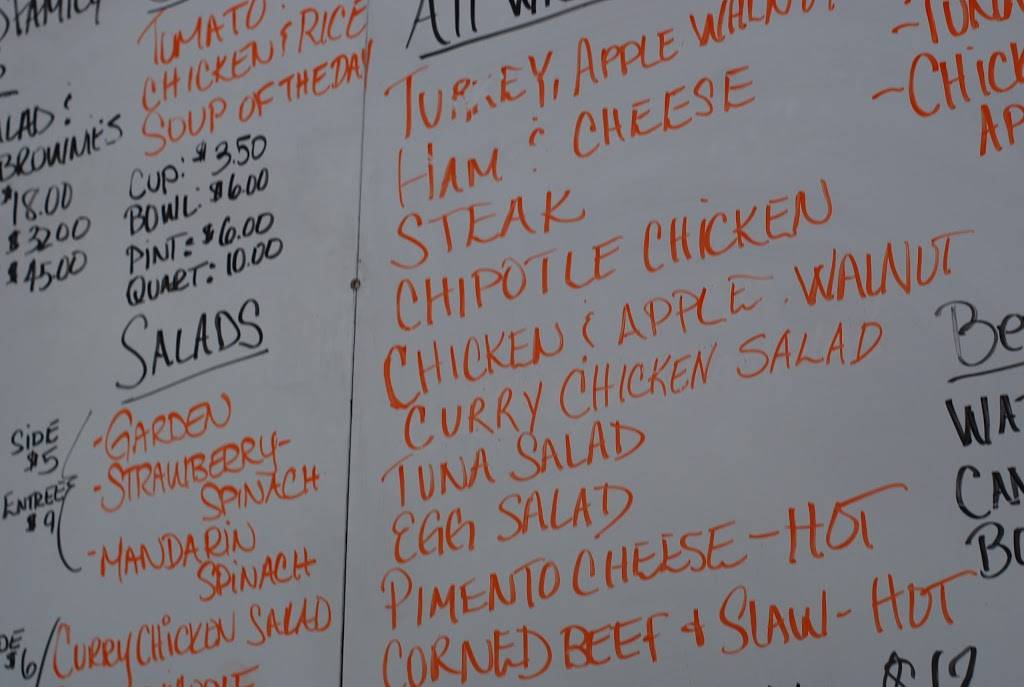 FAMILY
BROWNIES
$18.00
$32.00
$45.00
TOMATO
CHICKEN & RICE
SOUP OF THE DAY
CUP: $3.50
BOWL: $6.00
PINT: $6.00
QUART: 10.00
SALADS
SIDE
$5
ENTREES
$9
-GARDEN
-STRAWBERRY-
SPINACH
-MANDARIN
SPINACH
$6/CURRY CHICKEN SALAD
All
TURKEY, APPLE WALNUT
HAM & CHEESE
STEAK
CHIPOTLE CHICKEN
CHICKEN & APPLE WALNUT
CURRY CHICKEN SALAD
TUNA SALAD
EGG SALAD
PIMENTO CHEESE-HOT
CORNED BEEF & SLAW-HOT
-TUNA
-CHICK
AP
Be
WAT
CAN
BO
$12